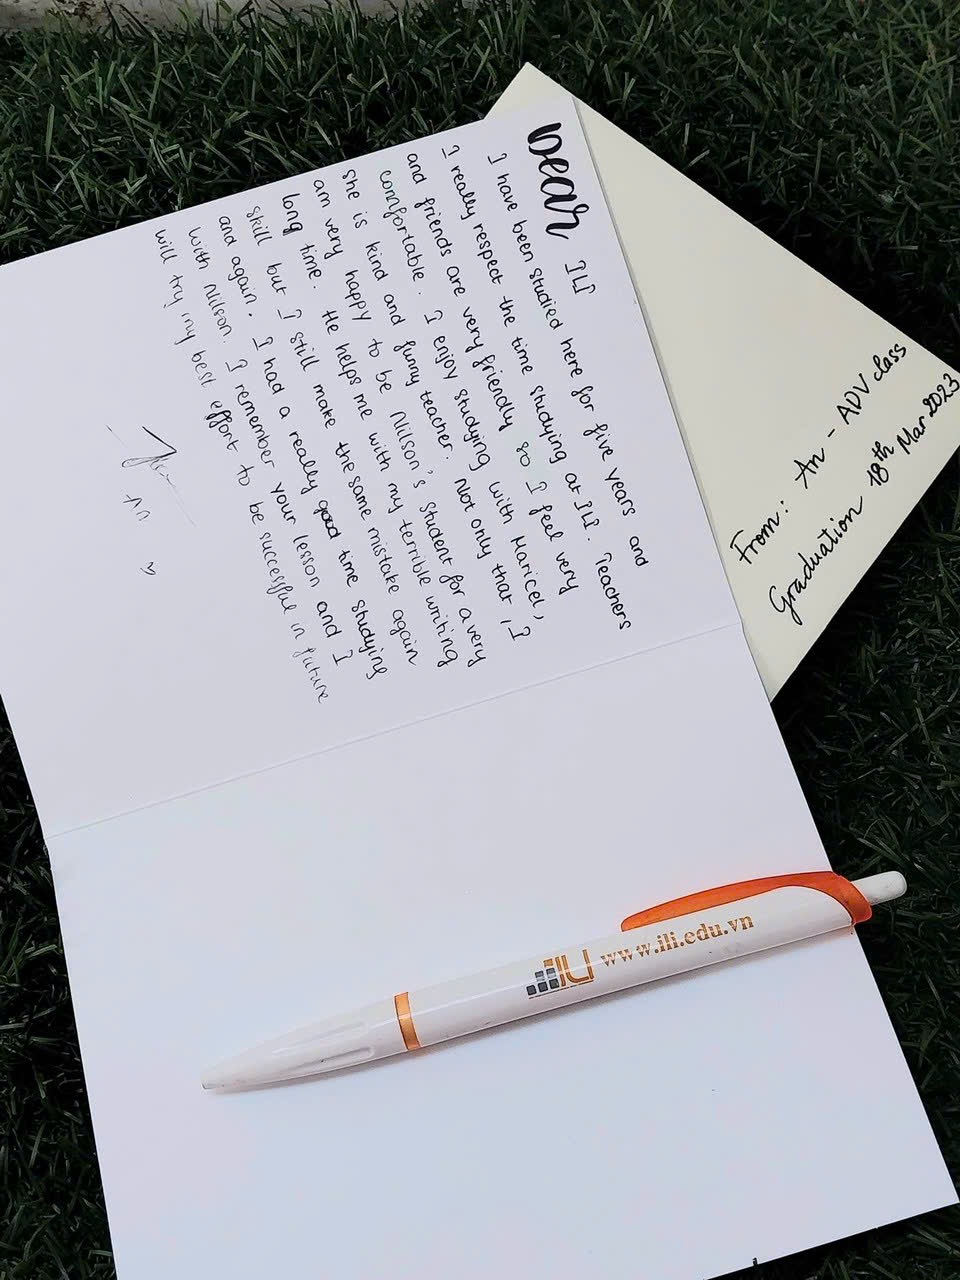 Dear ILI
I have been studied here for five years and
I really respect the time studying at ILI. Teachers
and friends are very friendly so I feel very
comfortable. I enjoy studying with Maricel,
she is kind and funny teacher. Not only that, I
am very happy to be Nilson's student for a very
long time. He helps me with my terrible writing
skill but I still make the same mistake again
and again. I had a really good time studying
with Nilson. I remember your lesson and I
will try my best effort to be successful in future
An
From: An - ADV class
Graduation 18th Mar 2023
ILI www.ili.edu.vn